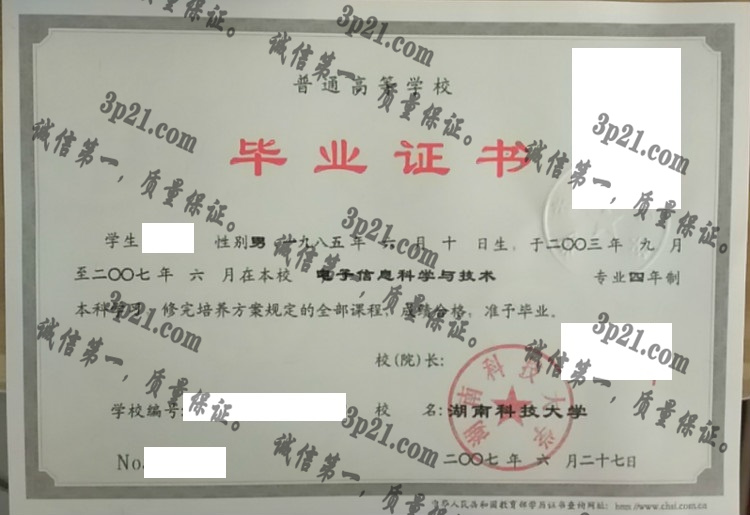 普通高等学校
毕业证书
学生 性别男，一九八五年 六月 十 日生，于二〇〇三年 九月
至二〇〇七年 六 月在本校 电子信息科学与技术 专业四年制
本科学习，修完培养方案规定的全部课程，成绩合格，准予毕业。
校(院)长:
学校编号: 校 名:湖南科技大学
湖南科技大学
No. 二〇〇七年 六 月二十七日
中华人民共和国教育部学历证书查询网址: http://www.chsi.com.cn
诚信第一，质量保证。
3p21.com
诚信第一，质量保证。
3p21.com
诚信第一，质量保证。
3p21.com
诚信第一，质量保证。
3p21.com
诚信第一，质量保证。
3p21.com
诚信第一，质量保证。
3p21.com
诚信第一，质量保证。
3p21.com
诚信第一，质量保证。